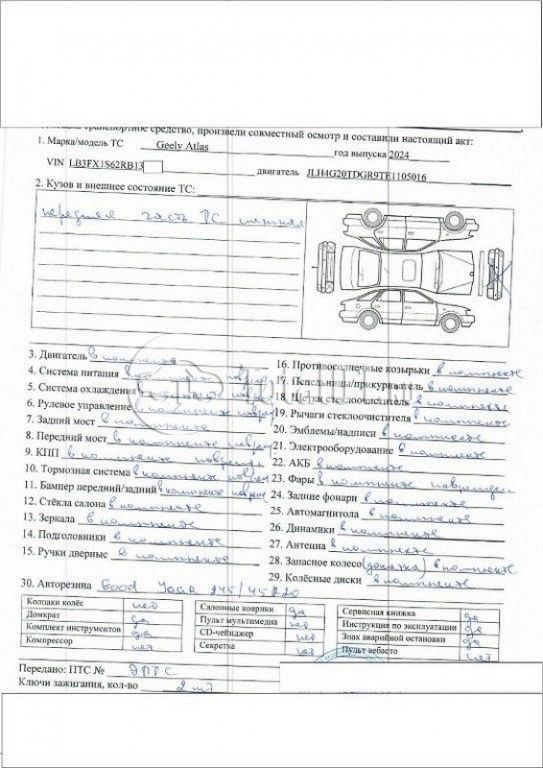 транспортное средство, произвели совместный осмотр и составили настоящий акт:
1. Марка/модель ТС Geely Atlas год выпуска 2024
VIN LB3FX1S62RB13 двигатель JLH4G20TDGR9TE1105016
2. Кузов и внешнее состояние ТС:
передняя часть ТС
3. Двигатель в комплекте
4. Система питания в комплекте поврежд
5. Система охлаждения в комплекте поврежд
6. Рулевое управление в комплекте поврежд
7. Задний мост в комплекте
8. Передний мост в комплекте поврежд
9. КПП в комплекте поврежден
10. Тормозная система в комплекте поврежд
11. Бампер передний/задний в комплекте поврежд
12. Стёкла салона в комплекте
13. Зеркала в комплекте
14. Подголовники в комплекте
15. Ручки дверные в комплекте
16. Противосолнечные козырьки в комплекте
17. Пепельницы/прикуриватель в комплекте
18. Щетки стеклоочистителя в комплекте
19. Рычаги стеклоочистителя в комплекте
20. Эмблемы/надписи в комплекте
21. Электрооборудование в комплекте
22. АКБ в комплекте
23. Фары в комплекте повреждены
24. Задние фонари в комплекте
25. Автомагнитола в комплекте
26. Динамики в комплекте
27. Антенна в комплекте
28. Запасное колесо (докатка) в комплекте
29. Колёсные диски в комплекте
30. Авторезина Good Year 245/45 R20
Колпаки колёс нет
Домкрат да
Комплект инструментов да
Компрессор нет
Салонные коврики да
Пульт мультимедиа нет
CD-чейнджер нет
Секретка нет
Сервисная книжка да
Инструкция по эксплуатации да
Знак аварийной остановки да
Пульт вебасто нет
Передано: ПТС № ЭПТС
Ключи зажигания, кол-во 2 шт